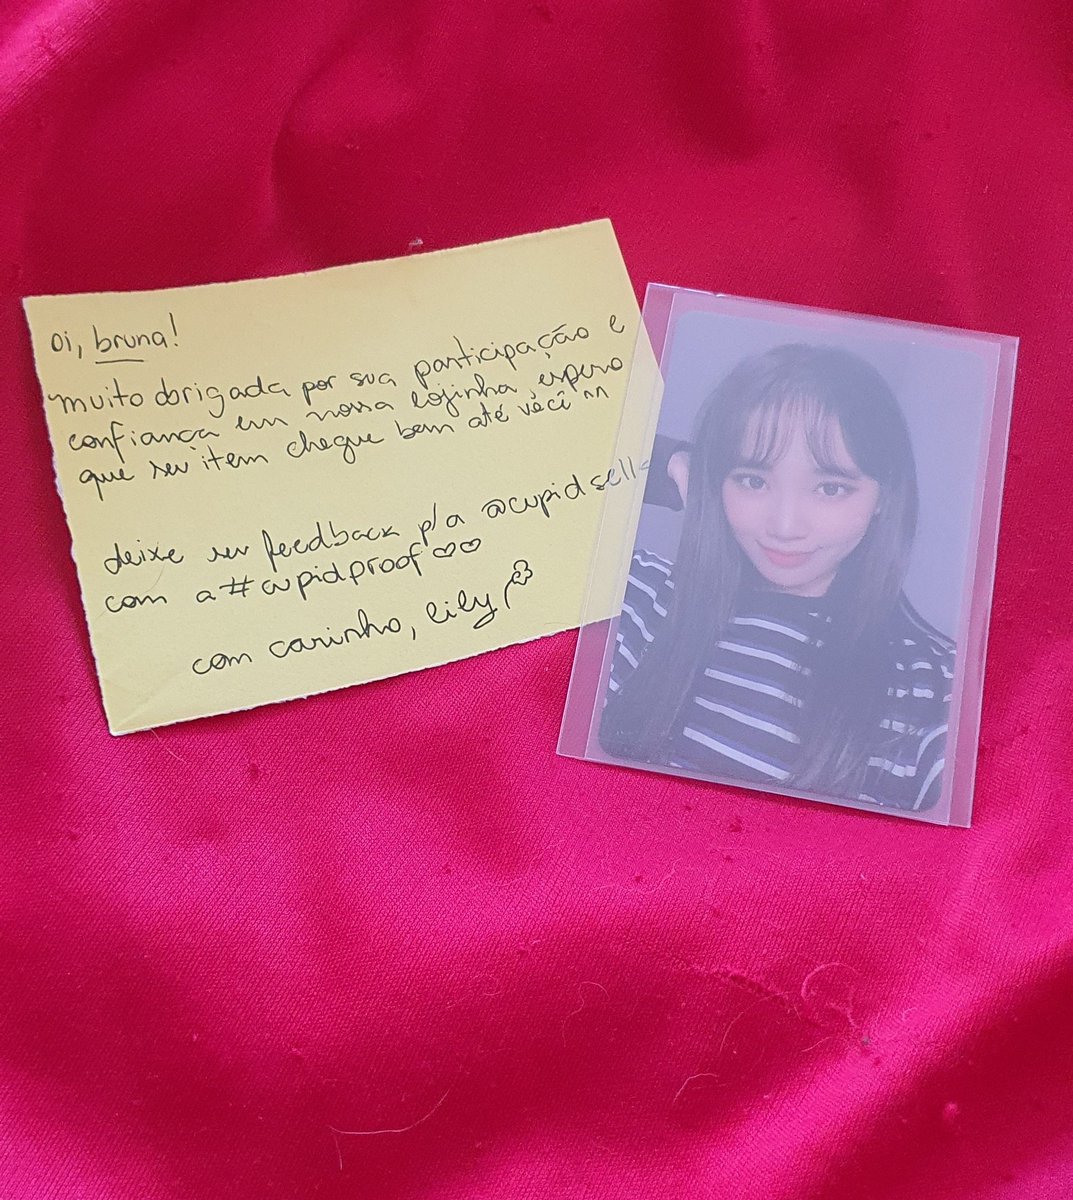 oi, bruna!
muito obrigada por sua participação e
confiança em nossa lojinha, espero
que seu item chegue bem até você ^^
deixe seu feedback p/a @cupidsells
com a #cupidproof ♡♡
com carinho, lily